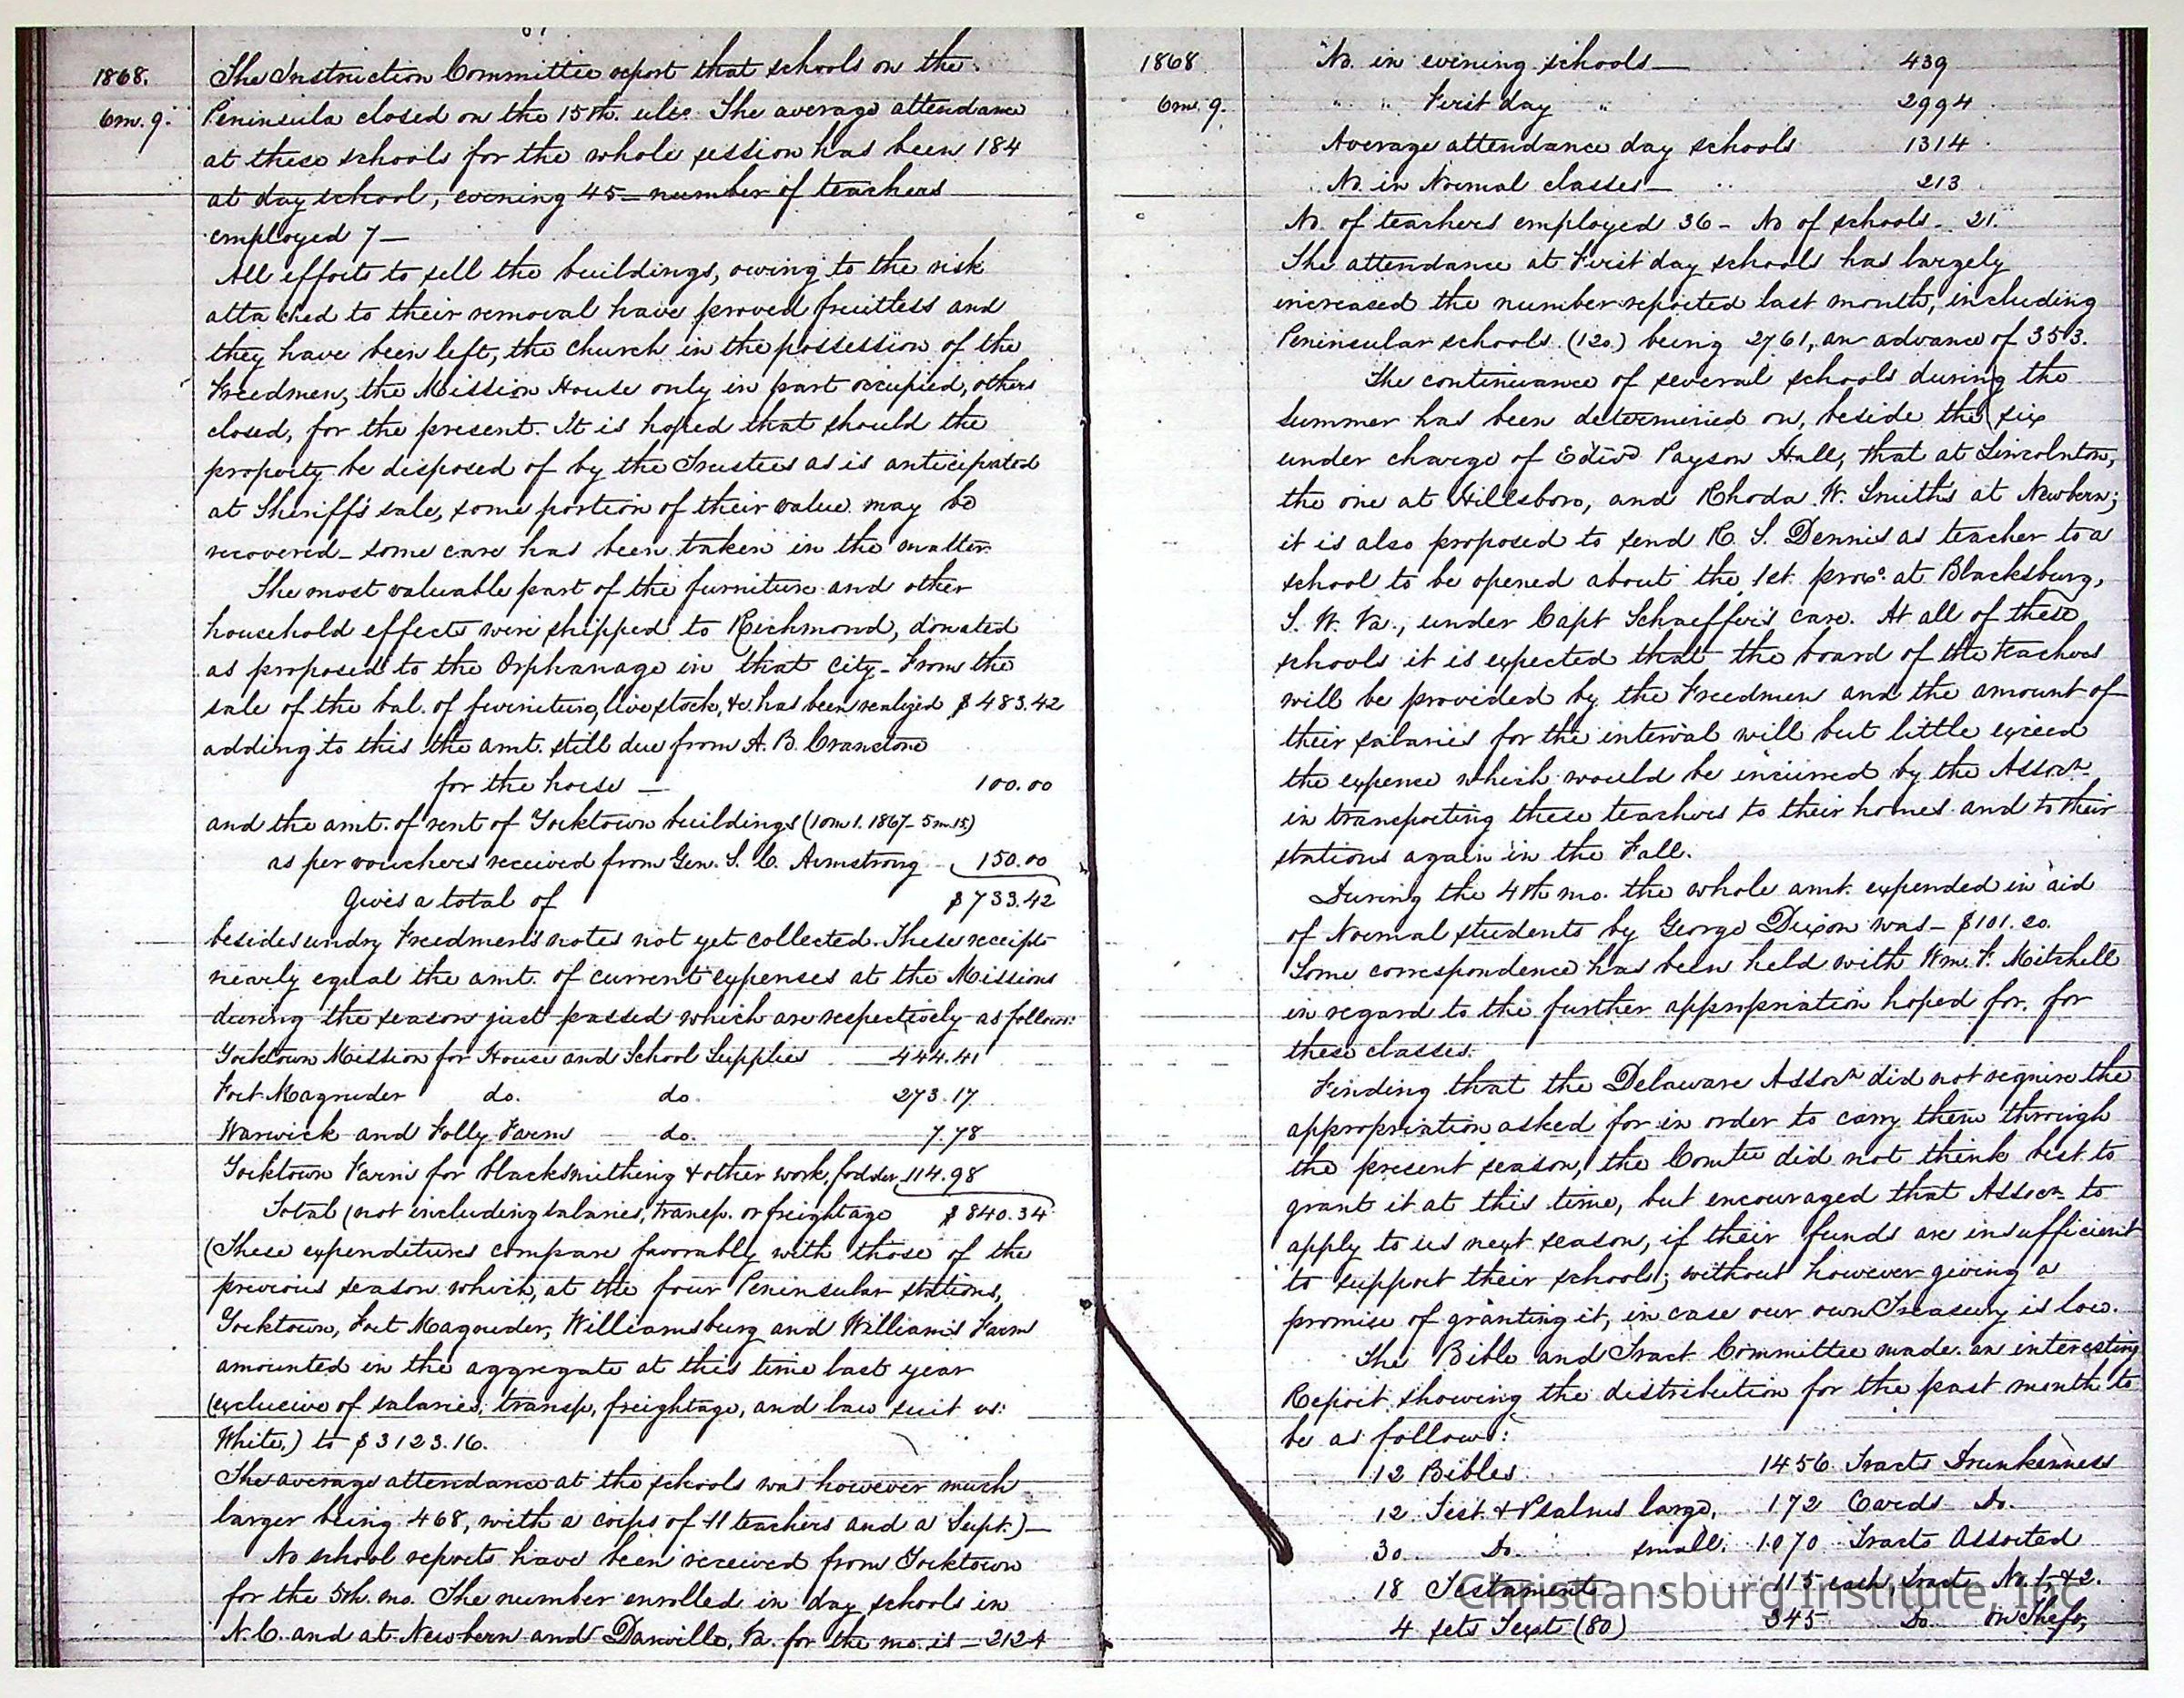 1868.
6m. 9.
The Instruction Committee report that schools on the
Peninsula closed on the 15th. ulto. The average attendance
at these schools for the whole session has been 184
at day school, evening 45 — number of teachers
employed 7 —
All efforts to sell the buildings, owing to the risk
attached to their removal have proved fruitless and
they have been left, the church in the possession of the
Freedmen, the Mission House only in part occupied, others
closed, for the present. It is hoped that should the
property be disposed of by the Trustees as is anticipated
at Sheriff's sale, some portion of their value may be
recovered — some care has been taken in the matter.
The most valuable part of the furniture and other
household effects were shipped to Richmond, donated
as proposed to the Orphanage in that city — From the
sale of the bal. of furniture, live stock, &c. has been realized $483.42
adding to this the amt. still due from A. B. Cranstone
for the horse — 100.00
and the amt. of rent of Yorktown buildings (10m 1. 1867 - 5m 15)
as per vouchers received from Gen. S. C. Armstrong 150.00
Gives a total of $733.42
beside sundry Freedmen's notes not yet collected. These receipts
nearly equal the amt. of current expenses at the Missions
during the season just passed which are respectively as follows:
Yorktown Mission for House and School Supplies 444.41
Fort Magruder do. do. 273.17
Warwick and Folly Farm do. 7.78
Yorktown Farm for blacksmithing & other work, fodder 114.98
Total (not including salaries, transp. or freightage $840.34
(These expenditures compare favorably with those of the
previous season which, at the four Peninsular stations,
Yorktown, Fort Magruder, Williamsburg and William's Farm
amounted in the aggregate at this time last year
(exclusive of salaries, transp, freightage, and law suit vs:
White,) to $3123.16.
The average attendance at the schools was however much
larger being 468, with a corps of 11 teachers and a Supt.) —
No school reports have been received from Yorktown
for the 5th. mo. The number enrolled in day schools in
N. C. and at Newbern and Danville, Va. for the mo. is — 2124
1868
6m. 9.
No. in evening schools — 439
" " First day " 2994
Average attendance day schools 1314
No. in Normal classes — 213
No. of teachers employed 36 — No of schools — 21.
The attendance at First day schools has largely
increased the number reported last month, including
Peninsular schools (120) being 2761, an advance of 353.
The continuance of several schools during the
summer has been determined on, beside the six
under charge of Edwd Payson Hall, that at Lincolnton,
the one at Hillsboro, and Rhoda W. Smith's at Newbern;
it is also proposed to send R. S. Dennis as teacher to a
school to be opened about the 1st. proxo. at Blacksburg,
S. W. Va., under Capt Schaeffer's care. At all of these
schools it is expected that the board of the teachers
will be provided by the Freedmen and the amount of
their salaries for the interval will but little exceed
the expence which would be incurred by the Assocn.
in transporting these teachers to their homes and to their
stations again in the Fall.
During the 4th mo. the whole amt. expended in aid
of Normal students by George Dixon was — $101.20.
Some correspondence has been held with Wm. F. Mitchell
in regard to the further appropriation hoped for, for
these classes.
Finding that the Delaware Assocn did not require the
appropriation asked for in order to carry them through
the present season, the Comtee did not think best to
grant it at this time, but encouraged that Assocn to
apply to us next season, if their funds are insufficient
to support their schools; without however giving a
promise of granting it, in case our own Treasury is low.
The Bible and Tract Committee made an interesting
Report showing the distribution for the past month to
be as follows:
12 Bibles 1456 Tracts Drunkenness
12 Test. & Psalms large, 172 Cards Do.
30 Do. small, 1070 Tracts Assorted
18 Testament 115 each Tracts No. 1 & 2.
4 sets Texts (80) 345 Do. on Theft,
Christiansburg Institute, Inc